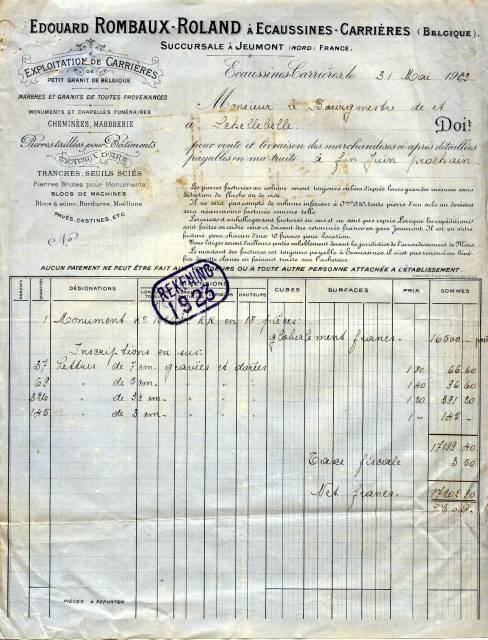 EDOUARD ROMBAUX-ROLAND À ECAUSSINES-CARRIÈRES (BELGIQUE).
SUCCURSALE À JEUMONT (NORD) FRANCE.
EXPLOITATION DE CARRIÈRES
DE
PETIT GRANIT DE BELGIQUE
MARBRES ET GRANITS DE TOUTES PROVENANCES
MONUMENTS ET CHAPELLES FUNÉRAIRES
CHEMINÉES, MARBRERIE
Pierres taillées pour Bâtiments
TRAVAUX D'ART
TRANCHES, SEUILS SCIÉS
Pierres Brutes pour Monuments
BLOCS DE MACHINES
Blocs à scier, Bordures, Moëllons
PAVÉS, CASTINES, ETC
No
Ecaussines-Carrières, le 31 Mai 1923
Monsieur le Bourgmestre de et
à Schellebelle Doit
pour vente et livraison des marchandises ci-après détaillées
payables en ma traite à fin Juin prochain
Les pierres facturées au volume seront toujours cubées d'après leurs grandes mesures sans
déduction de flache ou de vide.
Il ne sera pas compté de volume inférieur à 0m3 050, toute pierre d'un cube au dessous
sera néanmoins facturée comme telle.
AUCUN PAYEMENT NE PEUT ÊTRE FAIT AU OU A TOUTE AUTRE PERSONNE ATTACHÉE A L'ÉTABLISSEMENT
DÉSIGNATIONS HAUTEURS CUBES SURFACES PRIX SOMMES
REKENING
1923
1 Monument en 18 pièces:
globalement francs. 16500.-
Inscriptions en sus:
37 Lettres de 7 cm. gravées et dorées 1 80 66.60
69 " de 5 cm. " " " 1 40 96 60
326 " de 3½ cm. " " " 1 20 391 20
145 " de 3 cm. " " " 1 - 145 -
17199 40
Taxe fiscale 3 50
Net francs. 17202 90
PIÈCES A REPORTER